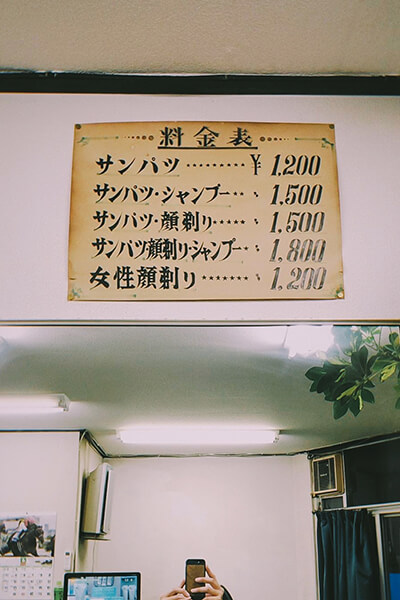 料金表
サンパツ ········· ¥ 1,200
サンパツ・シャンプー·· 〃 1,500
サンパツ・顔剃り····· 〃 1,500
サンパツ顔剃り・シャンプー·· 〃 1,800
女性顔剃り ······· 〃 1,200